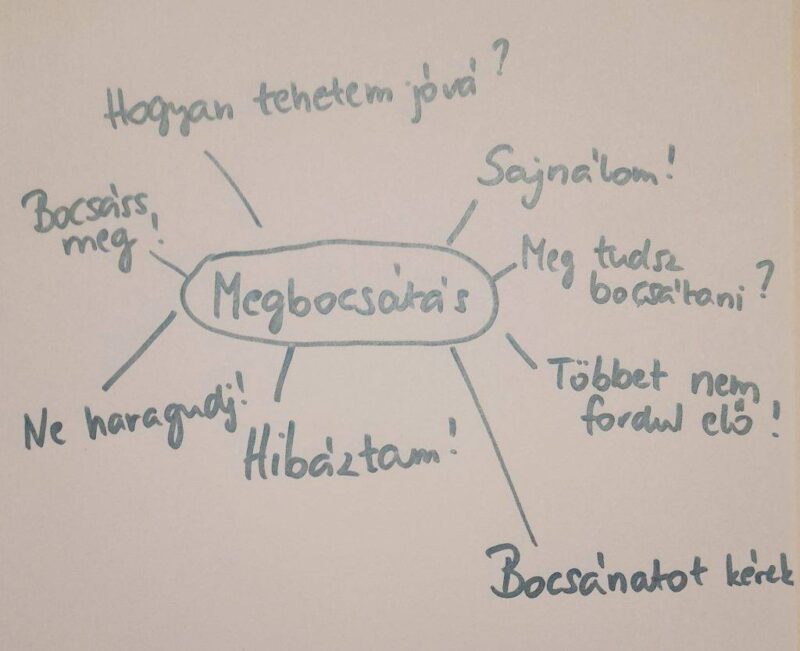 Hogyan tehetem jóvá?
Sajnálom!
Bocsáss
meg!
Meg tudsz
bocsátani?
Megbocsátás
Többet nem
fordul elő!
Ne haragudj!
Hibáztam!
Bocsánatot kérek